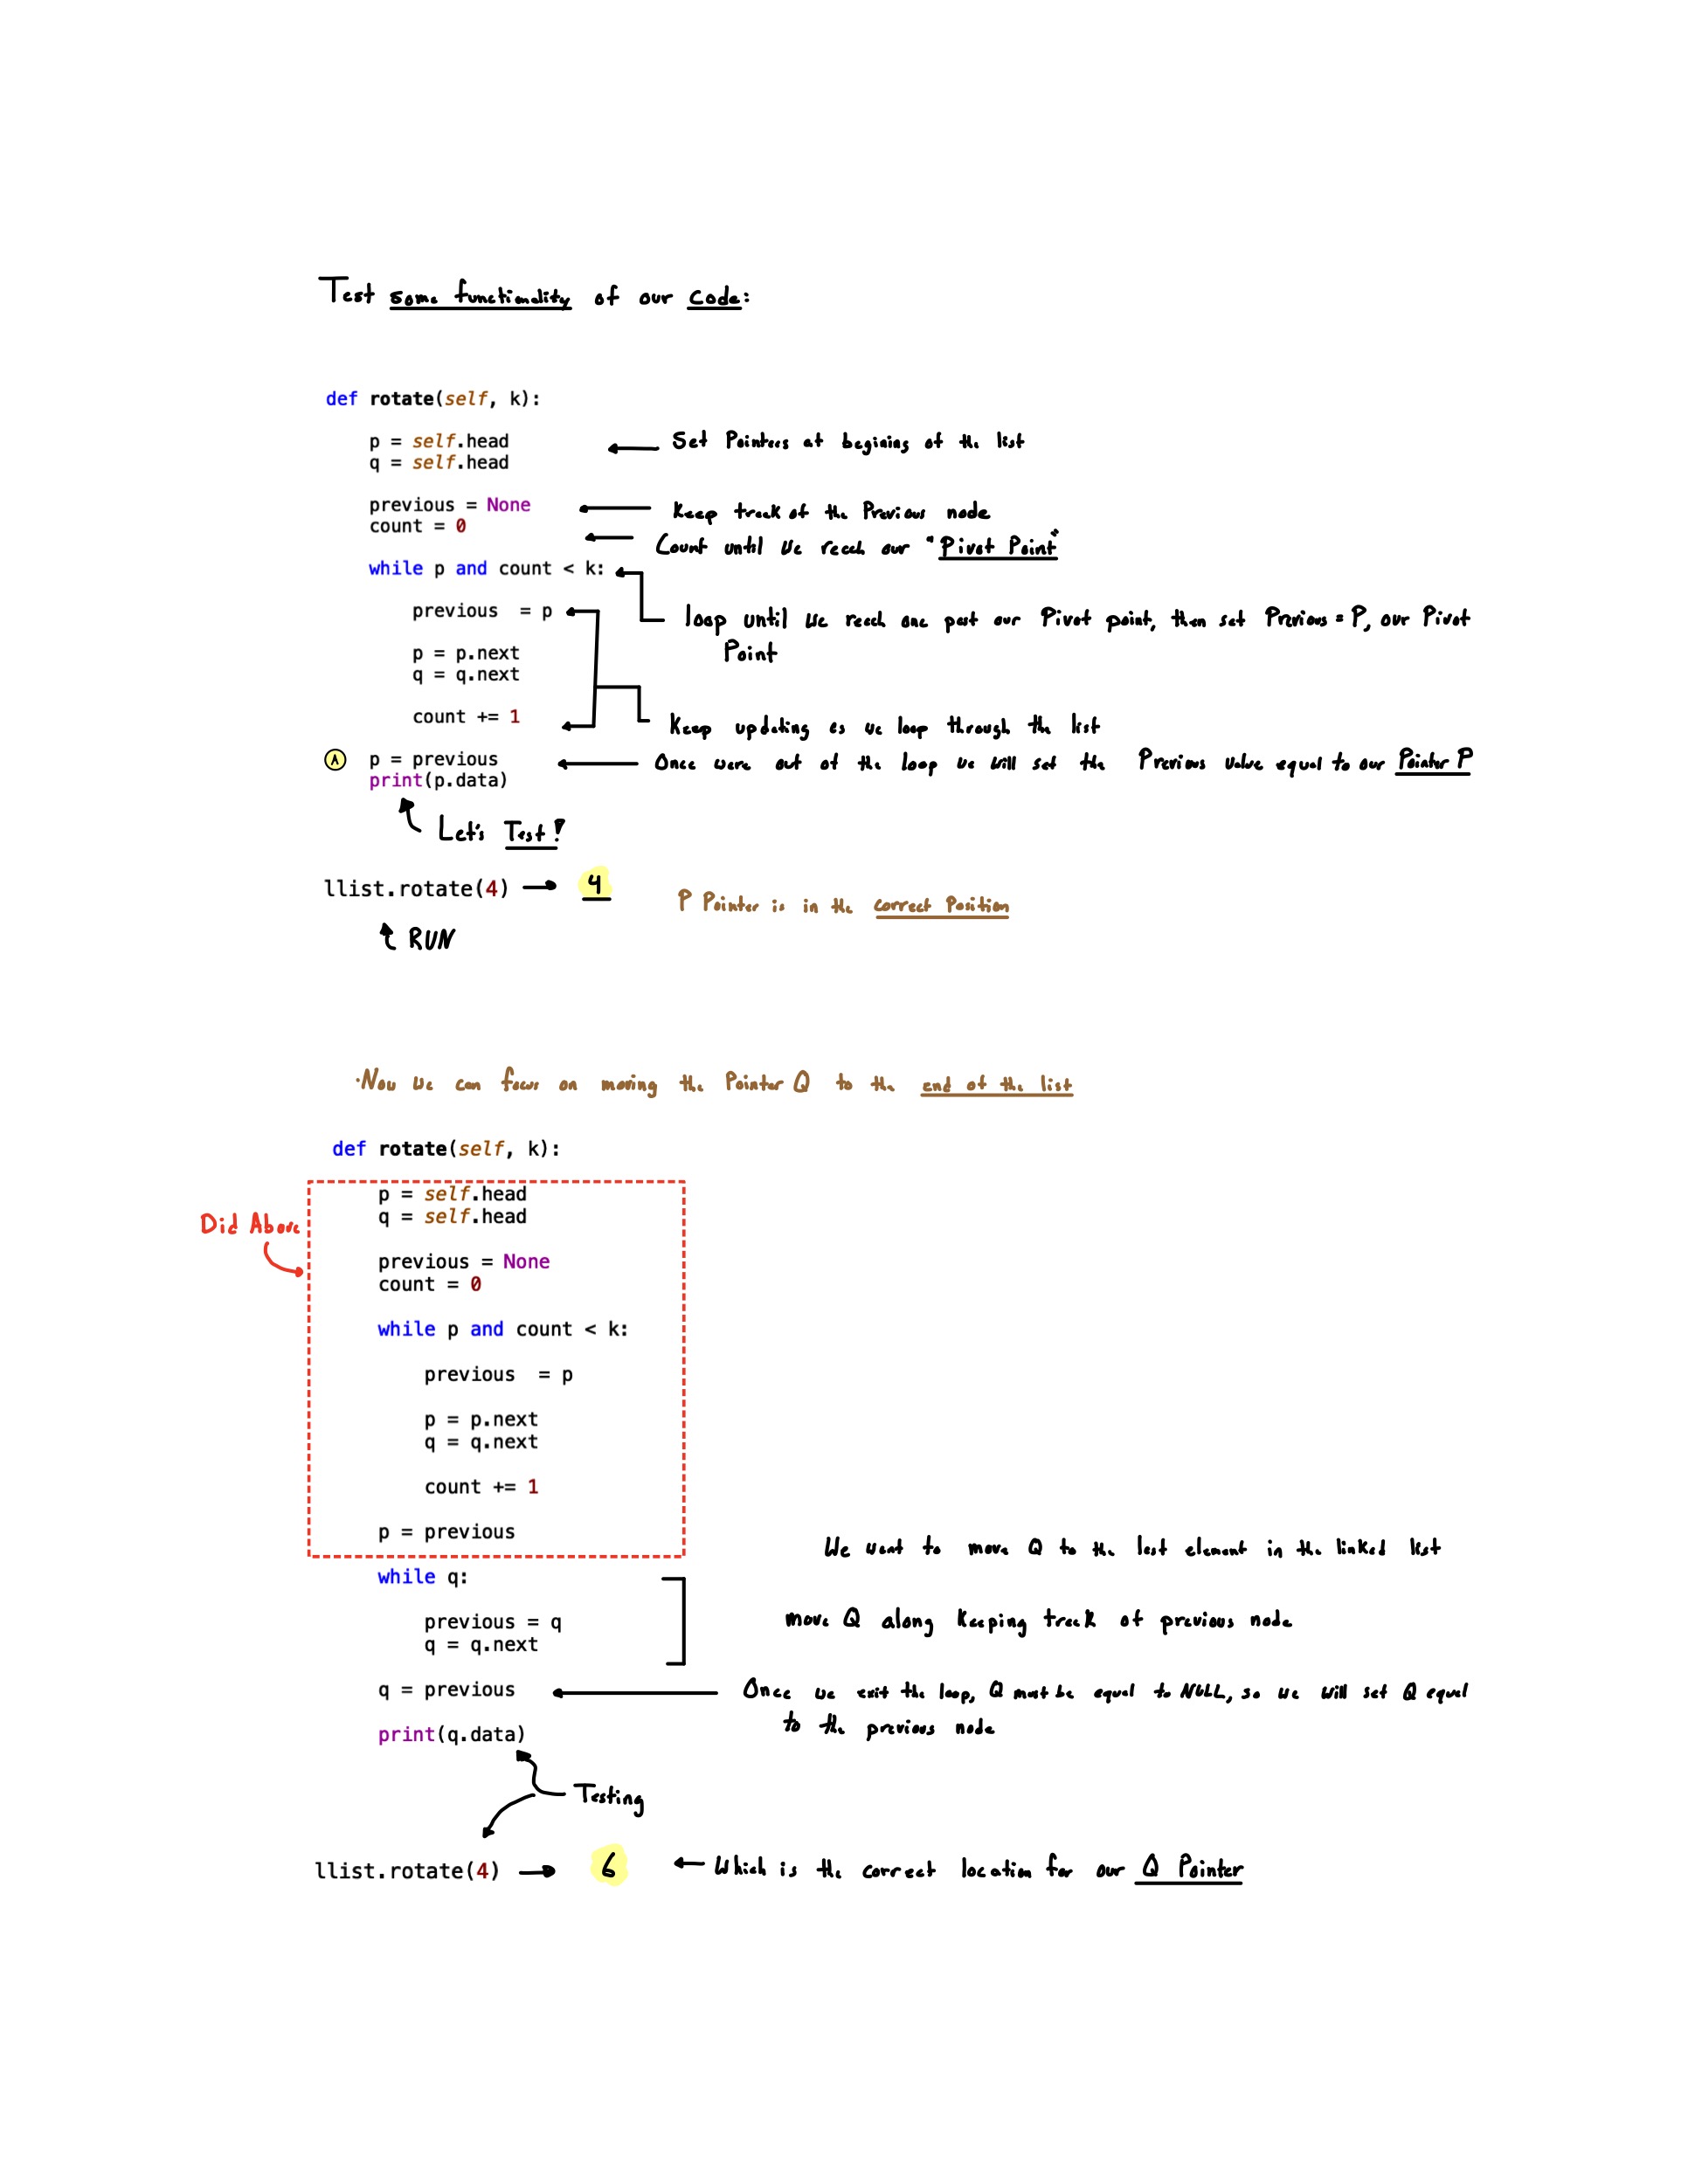 Test some functionality of our code:
def rotate(self, k):
p = self.head
q = self.head
Set Pointers at begining of the list
previous = None
Keep track of the Previous node
count = 0
Count until we reach our "Pivot Point"
while p and count < k:
previous  = p
loop until we reach one past our Pivot point, then set Previous = P, our Pivot
Point
p = p.next
q = q.next
count += 1
Keep updating as we loop through the list
A p = previous
Once were out of the loop we will set the Previous value equal to our Pointer P
print(p.data)
Let's Test!
llist.rotate(4) 4
P Pointer is in the correct Position
RUN
·Now we can focus on moving the Pointer Q to the end of the list
def rotate(self, k):
Did Above
p = self.head
q = self.head
previous = None
count = 0
while p and count < k:
previous  = p
p = p.next
q = q.next
count += 1
p = previous
We want to move Q to the last element in the linked list
while q:
previous = q
q = q.next
move Q along keeping track of previous node
q = previous
Once we exit the loop, Q must be equal to NULL, so we will set Q equal
to the previous node
print(q.data)
Testing
llist.rotate(4) 6
Which is the correct location for our Q Pointer